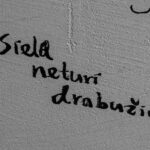 Siela
neturi
drabuži